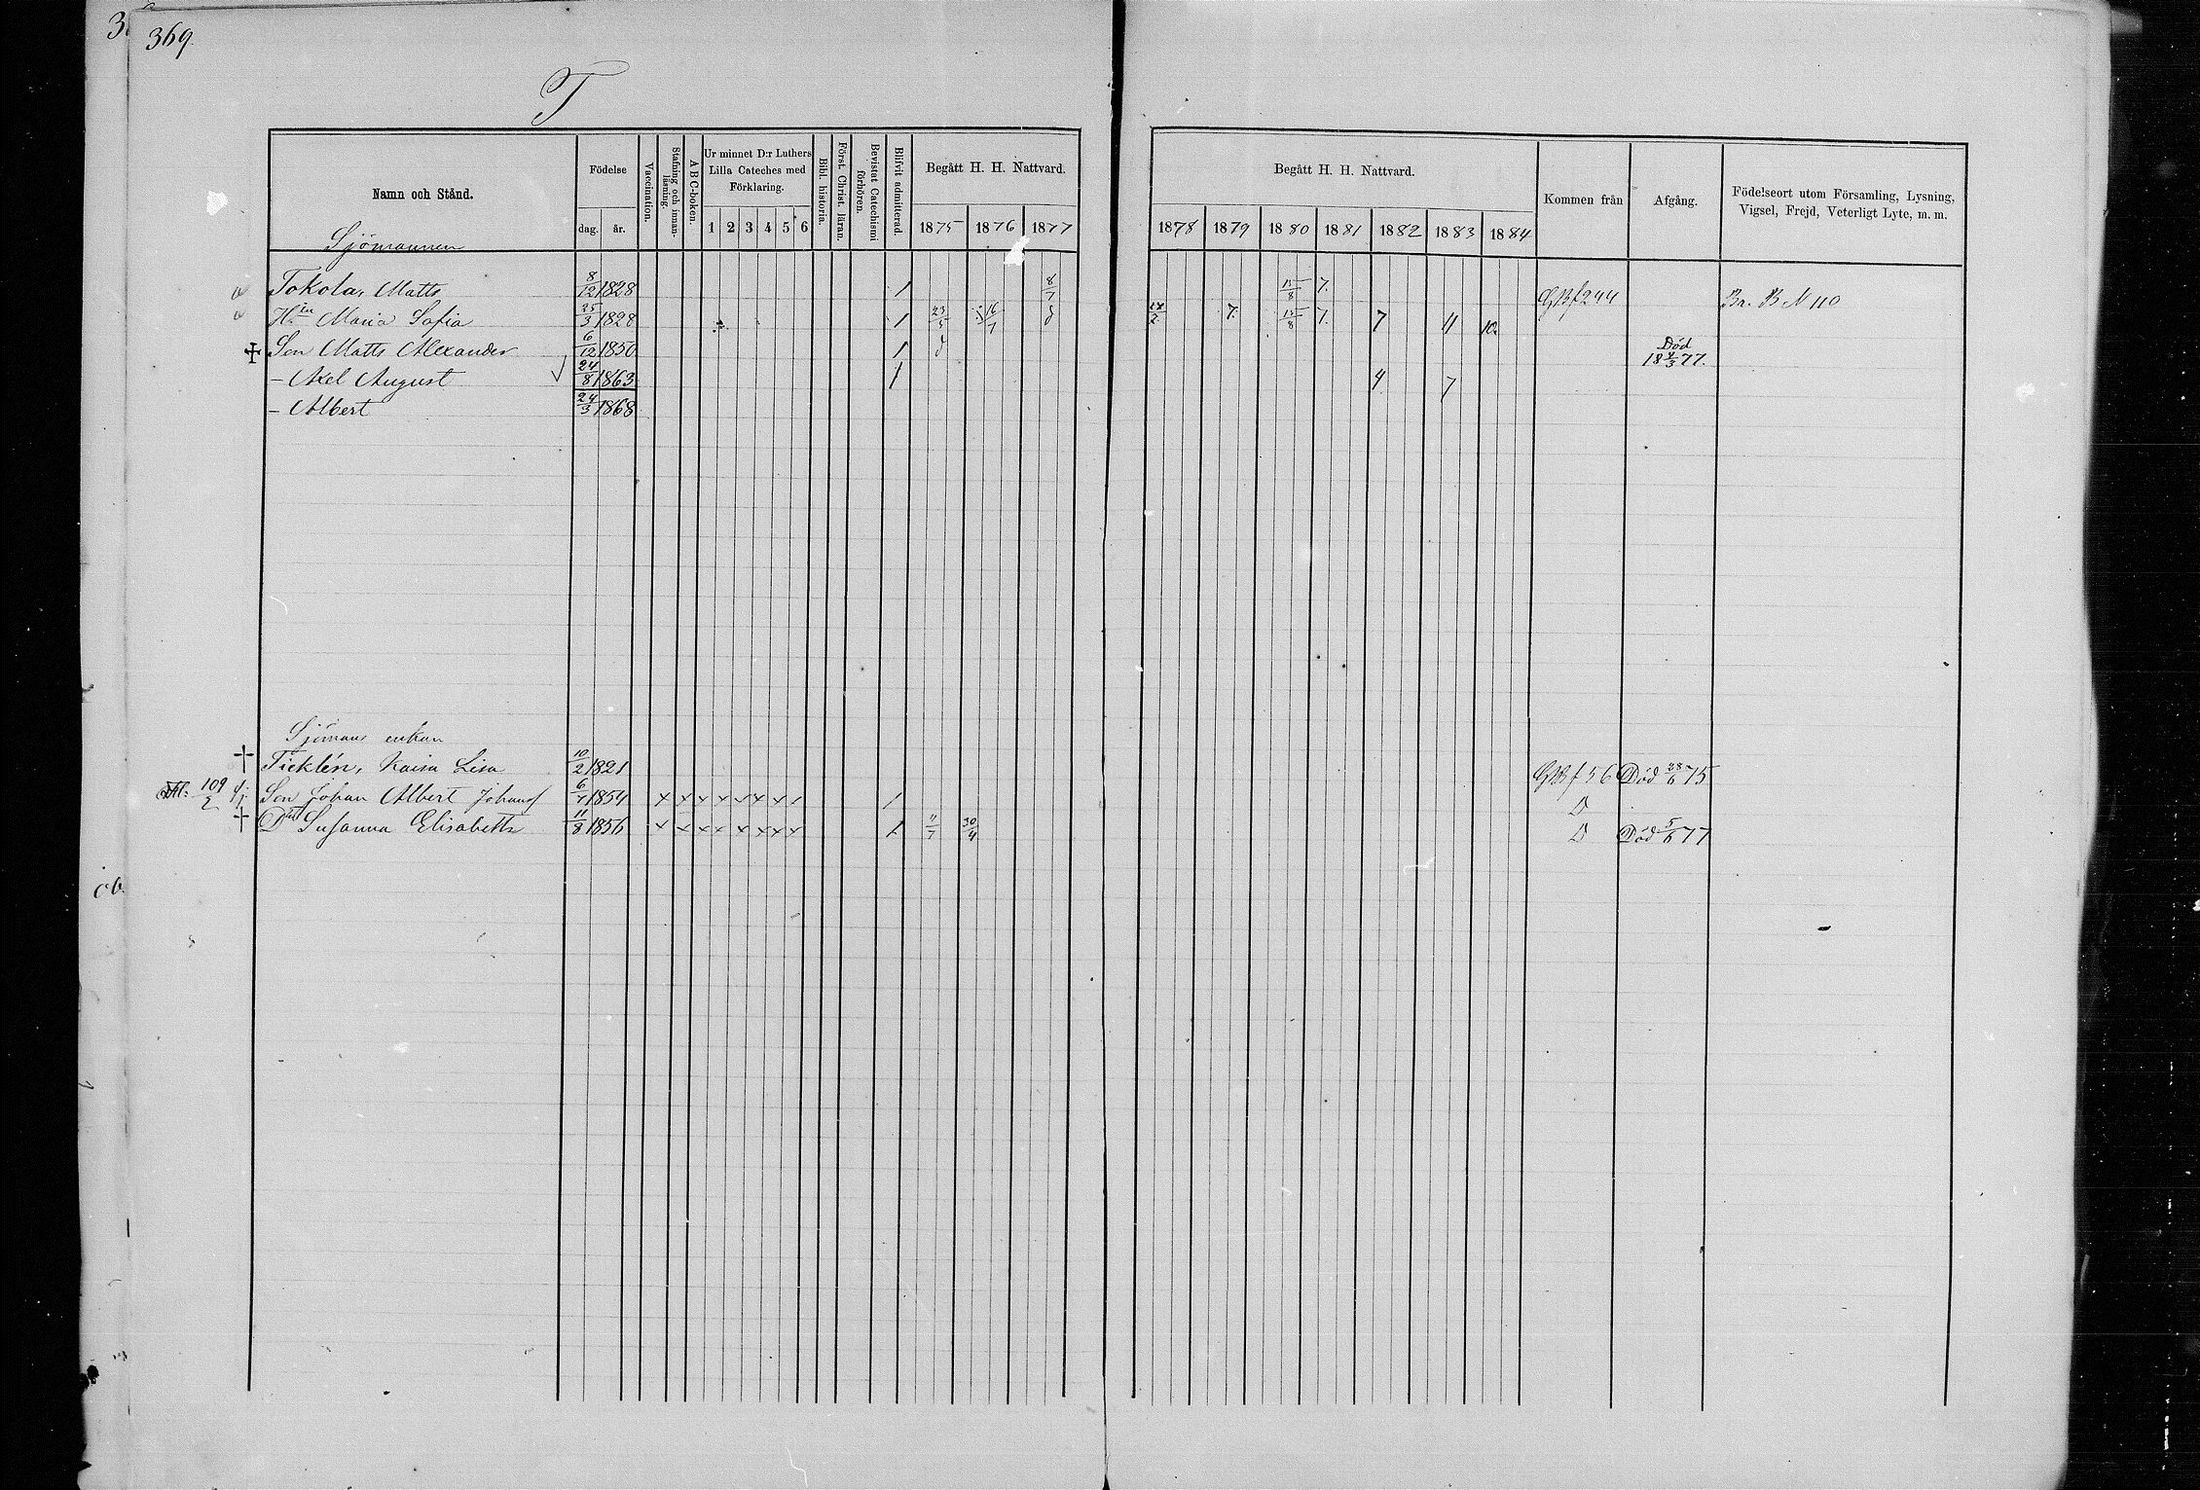 369.
T
Namn och Stånd.
Födelse
dag. år.
Vaccination.
Stafning och innanläsning.
ABC-boken.
Ur minnet D:r Luthers Lilla Cateches med Förklaring.
1 2 3 4 5 6
Bibl. historia.
Först. Christ. läran.
Bevistat Catechismi förhören.
Blifvit admitterad.
Begått H. H. Nattvard.
1875 1876 1877
Begått H. H. Nattvard.
1878 1879 1880 1881 1882 1883 1884
Kommen från
Afgång.
Födelseort utom Församling, Lysning, Vigsel, Frejd, Veterligt Lyte, m. m.
Sjömannen
Tokola, Matts 8/12 1828 1 8/7 15/8 7. GBf 244 Br. B N 110
H:in Maria Sofia 25/3 1828 1 23/5 16/7 7. 15/8 7. 7 11 10.
Son Matts Alexander 6/12 1850 1 Död 18 /3 77.
- Axel August 24/8 1863 1 4 7
- Albert 24/3 1868
Sjömans enkan
† Ticklén, Kaisa Lisa 10/2 1821 GBf 56 Död 28/6 75
109/2 Son Johan Albert Johans 6/7 1854 x x x x x x x 1 D
† D:r Susanna Elisabeth 11/8 1856 x x x x x x x x 1 11/7 30/4 D Död 5/6 77